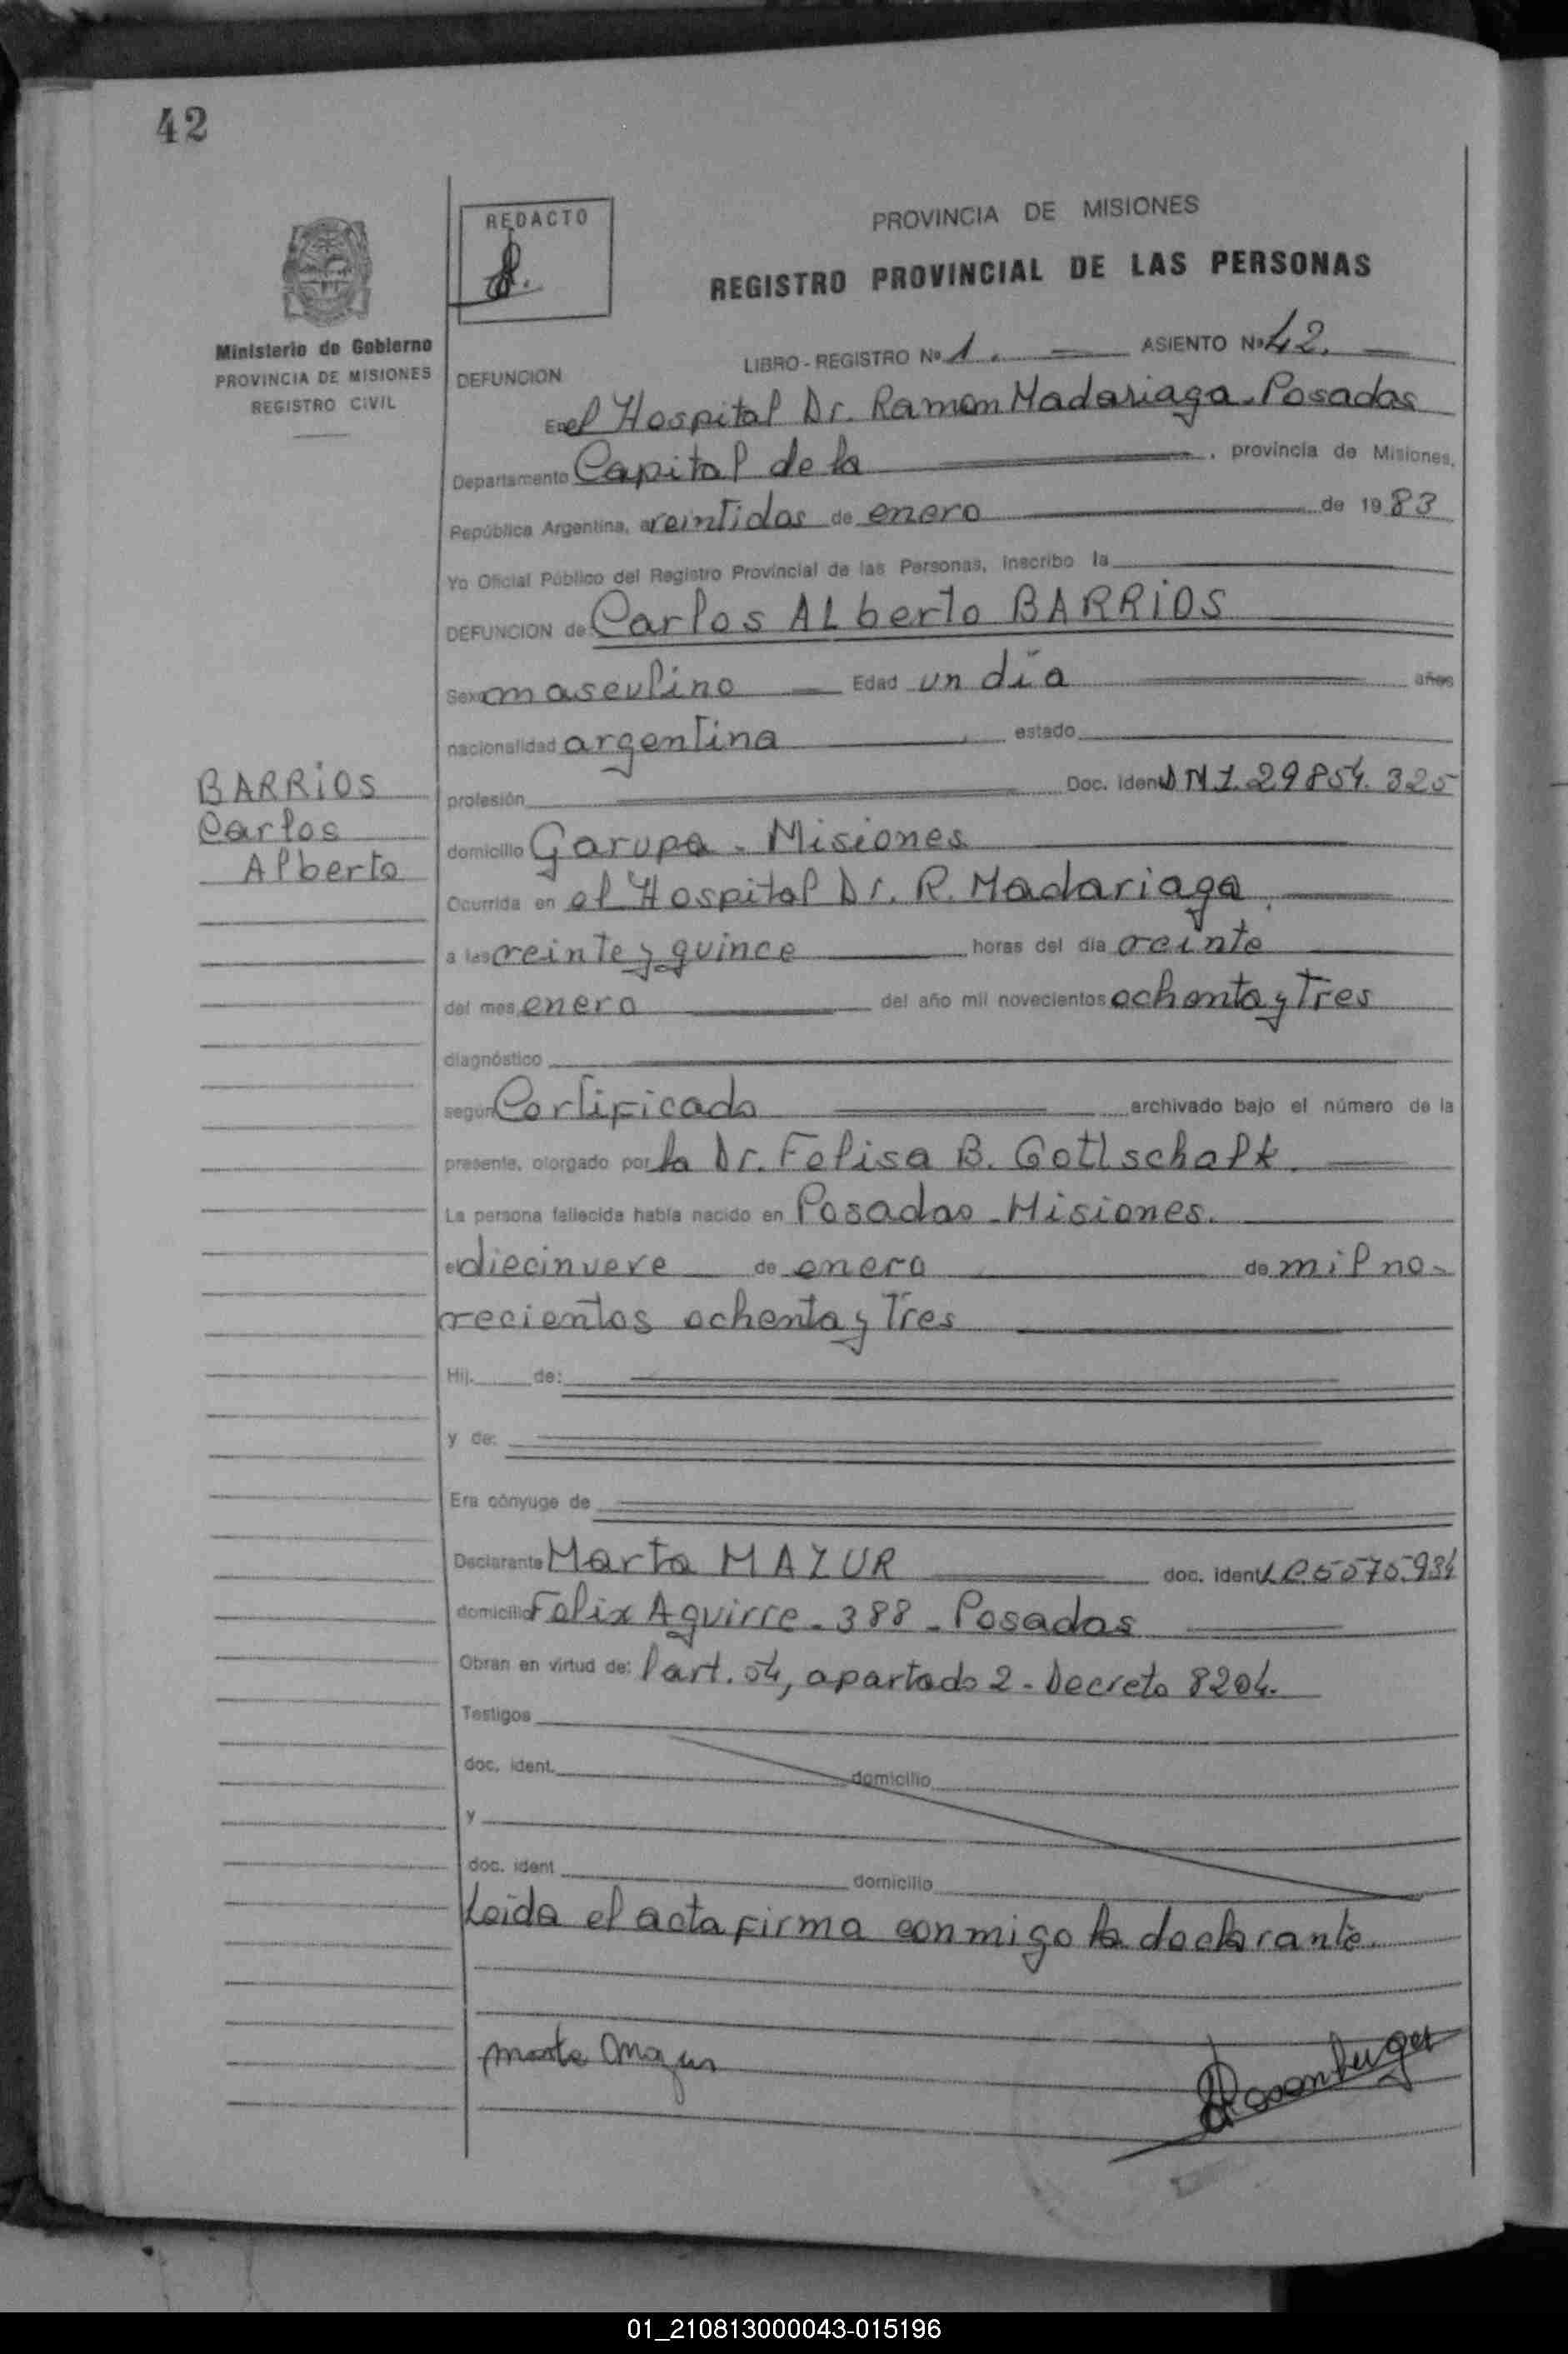 42
REDACTO
PROVINCIA DE MISIONES
REGISTRO PROVINCIAL DE LAS PERSONAS
Ministerio de Gobierno
PROVINCIA DE MISIONES
REGISTRO CIVIL
LIBRO - REGISTRO Nº 1. ASIENTO Nº 42.
DEFUNCION
En el Hospital Dr. Ramon Madariaga - Posadas
Departamento Capital de la , provincia de Misiones,
República Argentina, a veintidos de enero de 1983
Yo Oficial Público del Registro Provincial de las Personas, inscribo la
DEFUNCION de Carlos ALberto BARRiOS
Sexo masculino Edad un día años
nacionalidad argentina estado
profesión Doc. Ident. DNI. 29854.325
domicilio Garupa - Misiones
Ocurrida en el Hospital Dr. R. Madariaga.
a las veinte y quince horas del día veinte
del mes enero del año mil novecientos ochenta y Tres
diagnóstico
según Certificado archivado bajo el número de la
presente, otorgado por la Dr. Felisa B. Gottschalk.
La persona fallecida había nacido en Posadas - Misiones.
el diecinueve de enero de mil no-
vecientos ochenta y Tres
Hij. de:
y de:
Era cónyuge de
Declarante Marta MAZUR doc. ident. LC 5575.934
domicilio Felix Aguirre - 388 - Posadas
Obran en virtud de: l'art. 54, apartado 2 - Decreto 8204.
Testigos
doc. ident. domicilio
y
doc. ident domicilio
Leida el acta firma conmigo la declarante.
BARRiOS
Carlos
Alberto
Marta Mazur
01_210813000043-015196